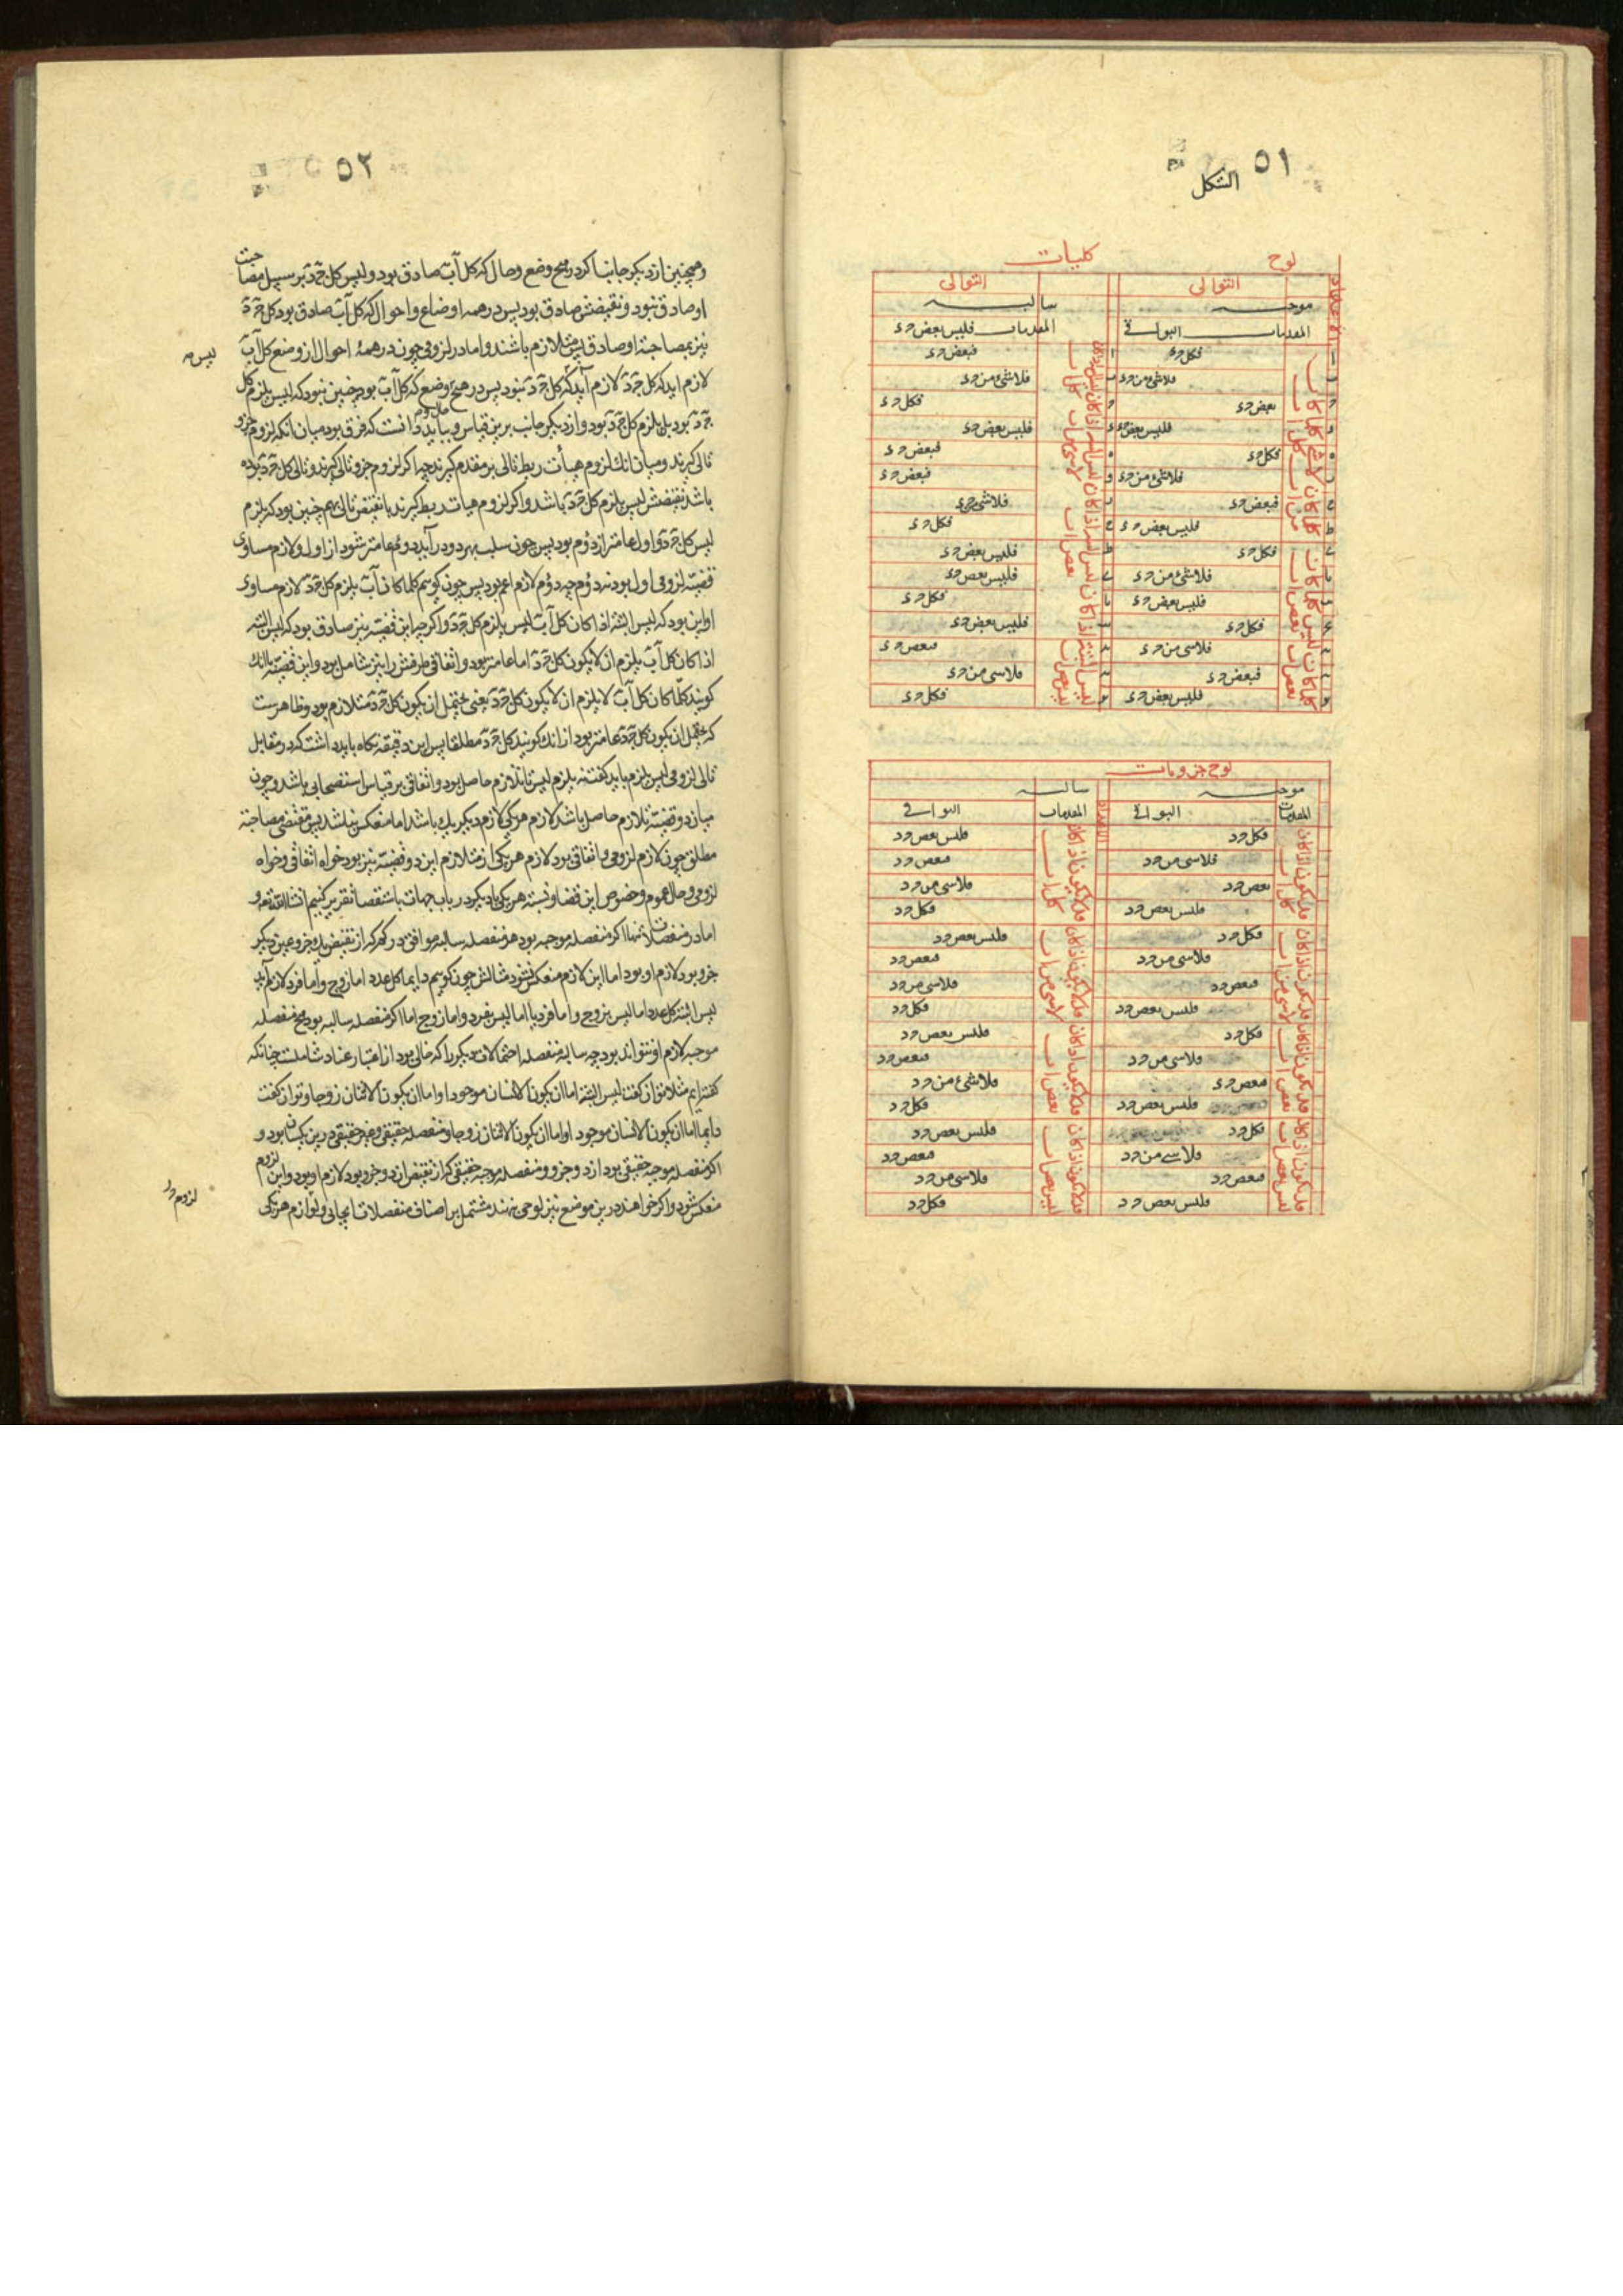 ٥١
الشكل
لوح كليات
التوالى التوالى
موجبه سالبه
المقدمات التوالى المقدمات فليس بعض ج د
فكل ج د فبعض ج د
فلاشئ من ج د فلاشئ من ج د
بعض ج د فكل ج د
فليس بعض ج د فليس بعض ج د
فكل ج د فبعض ج د
فلاشئ من ج د فبعض ج د
فبعض ج د فلاشئ ج د
فليس بعض ج د فكل ج د
فكل ج د فليس بعض ج د
فلاشئ من ج د فليس بعض ج د
فليس بعض ج د فكل ج د
فكل ج د فليس بعض ج د
فلاسى من ج د فبعض ج د
فبعض ج د فلاسى من ج د
فليس بعض ج د فكل ج د
لوح جزويات
موجبه سالبه
المقدمات التوالى المقدمات التوالى
فكل ج د فليس بعض ج د
فلاسى من ج د فبعض ج د
بعض ج د فلاسى من ج د
فليس بعض ج د فكل ج د
فكل ج د فليس بعض ج د
فلاسى من ج د فبعض ج د
فبعض ج د فلاسى من ج د
فليس بعض ج د فكل ج د
فكل ج د فليس بعض ج د
فلاسى من ج د فبعض ج د
فبعض ج د فلاشئ من ج د
فليس بعض ج د فكل ج د
فكل ج د فليس بعض ج د
فلاسى من ج د فبعض ج د
فبعض ج د فلاسى من ج د
فليس بعض ج د فكل ج د
٥٢
و همچنین از دیکر جانب اکر در هیچ وضع و حال که کل آب صادق بود و لیس کل ج د بر سبیل مصاحبت
او صادق نبود و نقیضش صادق بود پس در همه اوضاع و احوال که کل آب صادق بود کل ج د
نیز بمصاحبة او صادق پس متلازم باشند و اما در لزومی چون در همهٔ احوال از وضع کل آب
لازم اید که کل ج د لازم آید که کل ج د نبود پس در هیچ وضع که کل آب بود چنین نبود که لیس یلزم کل
ج د بود بل یلزم کل ج د بود و از دیکر جانب برین قیاس و بباید دانست که فرق بود میان انکه لزوم جزو
تالی کیرند و میان انک لزوم هیأت ربط تالی بر مقدم کیرند چه اکر لزوم جزو تالی کیرند و تالی کل ج د بوده
باشد نقیضش لیس یلزم کل ج د باشد و اکر لزوم هیات ربط کیرند با نقیض تالی بهم چنین بود که یلزم
لیس کل ج د و اول عامتر از دوم بود پس چون سلب بهر دو درآید دوم عامتر شود از اول و لازم مساوی
قضیه لزومی اول بود نه دوم چه دوم لازم اعم بود پس چون کوییم کلما کان آب یلزم کل ج د لازم مساوی
او این بود که لیس البتة اذا کان کل آب لیس یلزم کل ج د و اکر چه این قضیه نیز صادق بود که لیس البته
اذا کان کل آب یلزم ان لایکون کل ج د اما عامتر بود و اتفاقی طرفش را نیز شامل بود و این قضیه بانک
کویند کلّما کان کل آب لایلزم ان لا یکون کل ج د یعنی یحتمل ان یکون کل ج د متلازم بود و ظاهرست
که یحتمل ان یکون کل ج د عامتر بود از انک کویند کل ج د مطلقا پس این دقیقه نکاه باید داشت که در مقابل
تالی لزومی لیس یلزم باید کفت نه یلزم لیس تا تلازم حاصل بود و اتفاقی بر قیاس استصحابی باشد و چون
میان دو قضیه تلازم حاصل باشد لازم هر یکی لازم دیکر یک باشد اما منعکس نباشد پس مقتضی مصاحبة
مطلق چون لازم لزومی و اتفاقی بود لازم هر یکی از متلازم این دو قضیه نیز بود خواه اتفاقی و خواه
لزومی و حال عموم و خصوص این قضایا و نسبة هر یکی با دیکر در باب جهات باستقصا تقریر کنیم انشاالله تعالى و
اما در منفصلات لانها اکر منفصله موجبه بود هر منفصله سالبه موافق در کم که از نقیض یک جزو و عین دیکر
جزو بود لازم او بود اما این لازم منعکس نشود مثالش چون کوییم دایما کل عدد اما زوج و اما فرد لازم آید
لیس البته کل عدد اما لیس بزوج و اما فرد یا اما لیس بفرد و اما زوج اما اکر منفصله سالبه بود هیچ منفصله
موجبه لازم او نتواند بود چه سالبهٔ منفصله احتمالات دیکر را که خالی بود از اعتبار عناد شاملست چنانکه
کفته ایم مثلا توان کفت لیس البته اما ان یکون الانسان موجودا و اما ان یکون الاثنان زوجا و توان کفت
دایما اما ان یکون الانسان موجودا و اما ان یکون الاثنان زوجا و منفصله حقیقی و غیر حقیقی درین یکسان بود و
اکر منفصله موجبه حقیقی بود از دو جزو و منفصله موجبه حقیقی که از نقیض ان دو جزو بود لازم او بود و این لزوم
منعکس شود و اکر خواهند درین موضع نیز لوحی نهند مشتمل بر اصناف منفصلات ایجابی و لوازم هر یکی